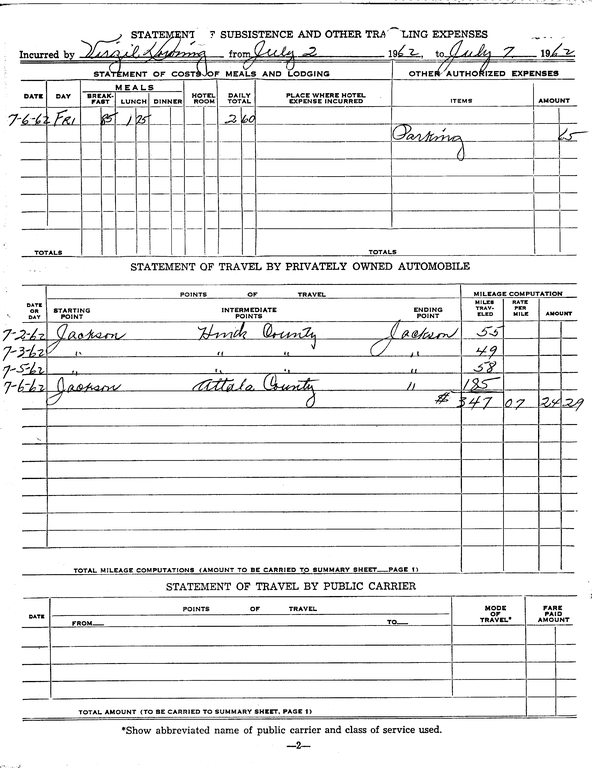 STATEMENT F SUBSISTENCE AND OTHER TRA LING EXPENSES
Incurred by Virgil Downing from July 2 1962, to July 7 1962
STATEMENT OF COSTS OF MEALS AND LODGING OTHER AUTHORIZED EXPENSES
DATE DAY MEALS BREAK-FAST LUNCH DINNER HOTEL ROOM DAILY TOTAL PLACE WHERE HOTEL EXPENSE INCURRED ITEMS AMOUNT
7-6-62 FRI 85 1 75 2 60
Parking 65
TOTALS TOTALS
STATEMENT OF TRAVEL BY PRIVATELY OWNED AUTOMOBILE
POINTS OF TRAVEL MILEAGE COMPUTATION
DATE OR DAY STARTING POINT INTERMEDIATE POINTS ENDING POINT MILES TRAV-ELED RATE PER MILE AMOUNT
7-2-62 Jackson Hinds County Jackson 55
7-3-62 " " " " 49
7-5-62 " " " " 58
7-6-62 Jackson Attala County " 185
# 347 07 24 29
TOTAL MILEAGE COMPUTATIONS (AMOUNT TO BE CARRIED TO SUMMARY SHEET—PAGE 1)
STATEMENT OF TRAVEL BY PUBLIC CARRIER
DATE POINTS OF TRAVEL MODE OF TRAVEL* FARE PAID AMOUNT
FROM— TO—
TOTAL AMOUNT (TO BE CARRIED TO SUMMARY SHEET, PAGE 1)
*Show abbreviated name of public carrier and class of service used.
—2—